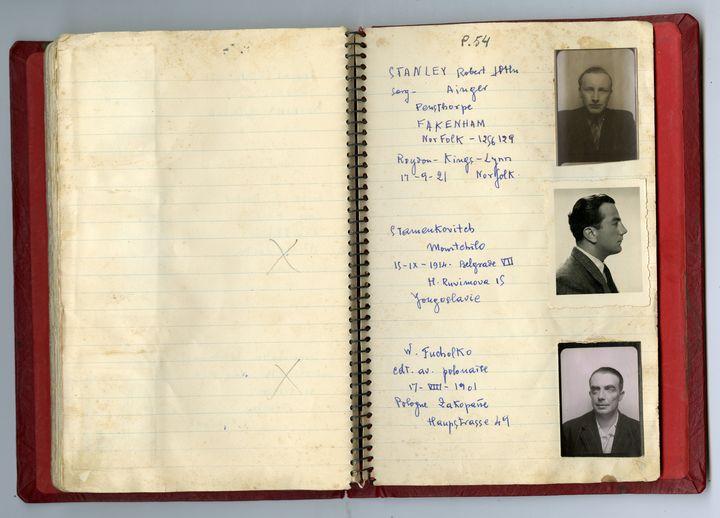 P.54
STANLEY Robert John
Serg- Ainger
Pensthorpe
FAKENHAM
NorFolk - 1256129
Roydon - Kings - Lynn
17-9-21 Norfolk.
Stamenkovitch
Momtchilo
15-IX-1914. Belgrade VII
H. Ruvimova 15
Yougoslavie
W. Fucholko
cdt. av. polonaise
17-VIII-1901
Pologne Zakopane
Haupstrasse 49